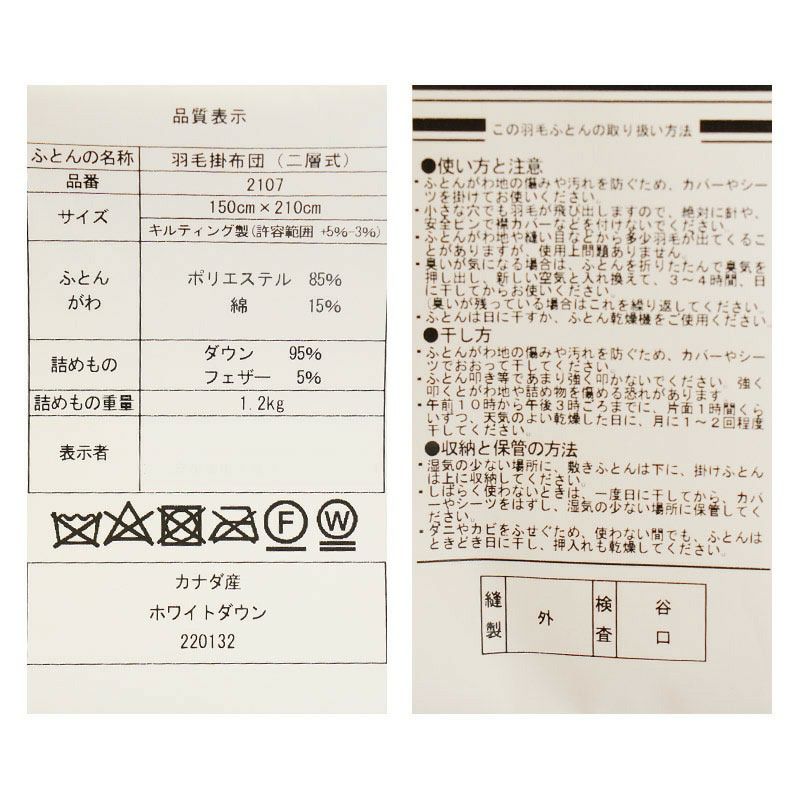 品質表示
ふとんの名称 羽毛掛布団（二層式）
品番 2107
サイズ 150cm×210cm
キルティング製(許容範囲 +5%-3%)
ふとん
がわ
ポリエステル 85%
綿 15%
詰めもの
ダウン 95%
フェザー 5%
詰めもの重量 1.2kg
表示者
F W
カナダ産
ホワイトダウン
220132
この羽毛ふとんの取り扱い方法
●使い方と注意
・ふとんがわ地の傷みや汚れを防ぐため、カバーやシー
ツを掛けてお使いください。
・小さな穴でも羽毛が飛び出しますので、絶対に針や、
安全ピンで襟カバーなどを付けないでください。
・ふとんがわ地や縫い目などから多少羽毛が出てくるこ
とがありますが、使用上問題ありません。
・臭いが気になる場合は、ふとんを折りたたんで臭気を
押し出し、新しい空気と入れ換えて、3～4時間、日
に干してからお使いください。
(臭いが残っている場合はこれを繰り返してください。)
・ふとんは日に干すか、ふとん乾燥機をご使用ください。
●干し方
・ふとんがわ地の傷みや汚れを防ぐため、カバーやシー
ツでおおって干してください。
・ふとん叩き等であまり強く叩かないでください。強く
叩くとがわ地や詰め物を傷める恐れがあります。
・午前10時から午後3時ごろまでに、片面1時間くら
いずつ、天気のよい乾燥した日に、月に1～2回程度
干してください。
●収納と保管の方法
・湿気の少ない場所に、敷きふとんは下に、掛けふとん
は上に収納してください。
・しばらく使わないときは、一度日に干してから、カバ
ーやシーツをはずし、湿気の少ない場所に保管してく
ださい。
・ダニやカビをふせぐため、使わない間でも、ふとんは
ときどき日に干し、押入れも乾燥してください。
縫製 外 検査 谷口